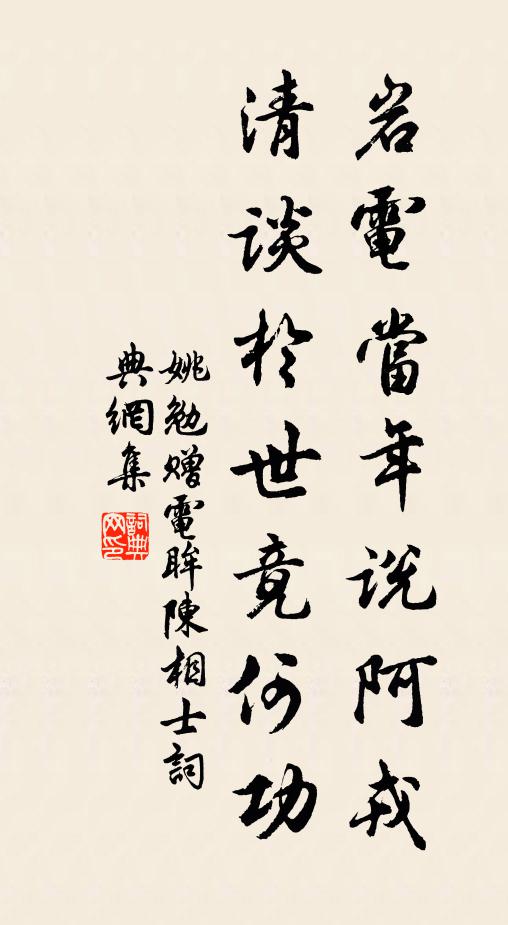 岩電當年説阿戎
清談於世竟何功
姚勉贈電眸陳相士詞
典網集
詞典網印